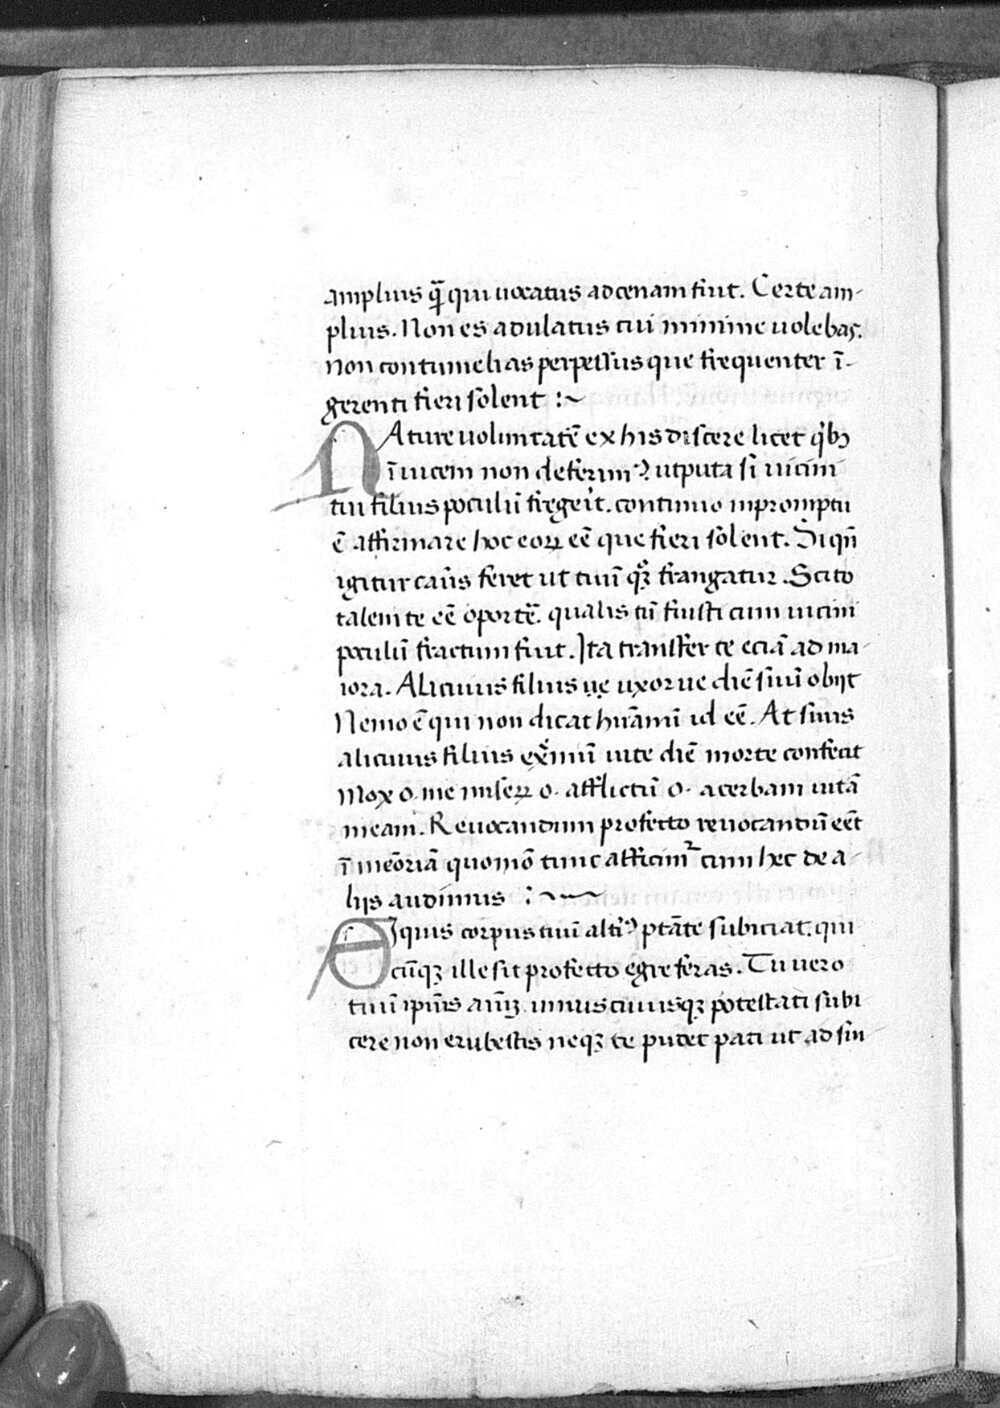 amplius q̃ qui uocatus ad cenam fiut. Certe am-
plius. Non es adulatus cui minime uolebas.
Non contumelias perpessus que frequenter ĩ-
gerenti fieri solent :~
NAture uoluntatẽ ex his discere licet qͥbꝫ
ĩuicem non deferimꝰ. utputa si uicini
tui filius poculũ fregeͥt. continuo inpromptu
ẽ affirmare hoc eoꝝ eẽ que fieri solent. Si qñ
igitur cauus feret ut tuũ qꝫ frangatur. Scito
talem te eẽ oportẽ. qualis tũ fuisti cum uicini
poculũ fractum fuit. Ita transfer te eciã ad ma-
iora. Alicuius filius ue uxor ue diẽ suũ obijt
Nemo ẽ qui non dicat hũanũ id eẽ. At suus
alicuius filius exͭmũ uite diẽ morte confecit
Mox o. me miserꝝ o. afflictũ o. acerbam uitã
meam. Reuocandum profecto reuocandũ eẽt
ĩ mẽoriã quomõ tunc afficimͬ cum hec de a-
lijs audimus :~~
SIquis corpus tuũ altiꝰ ptãte subiciat. qui
cũqꝫ ille sit profecto egre feras. Tu uero
tuũ ipiũs aĩuꝫ. unuscuiusqꝫ potestati subi-
cere non erubescis neqꝫ te pudet pati ut ad sin